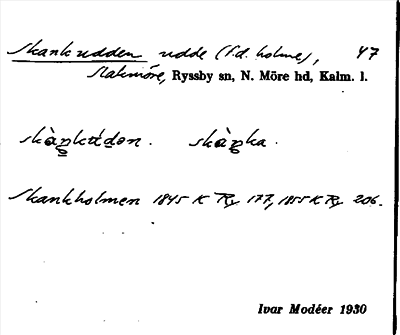 Skankudden udde (f.d. holme), 47
Slakmöre, Ryssby sn, N. Möre hd, Kalm. l.
skàŋkɯ́dən. skàŋka.
Skankholmen 1845 K Ry 177, 1855 K Ry 206.
Ivar Modéer 1930